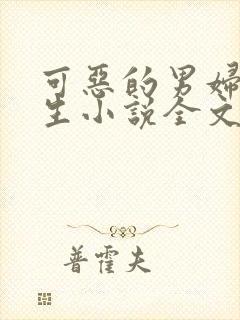 可惡的男婦
生小說全文
普霍夫